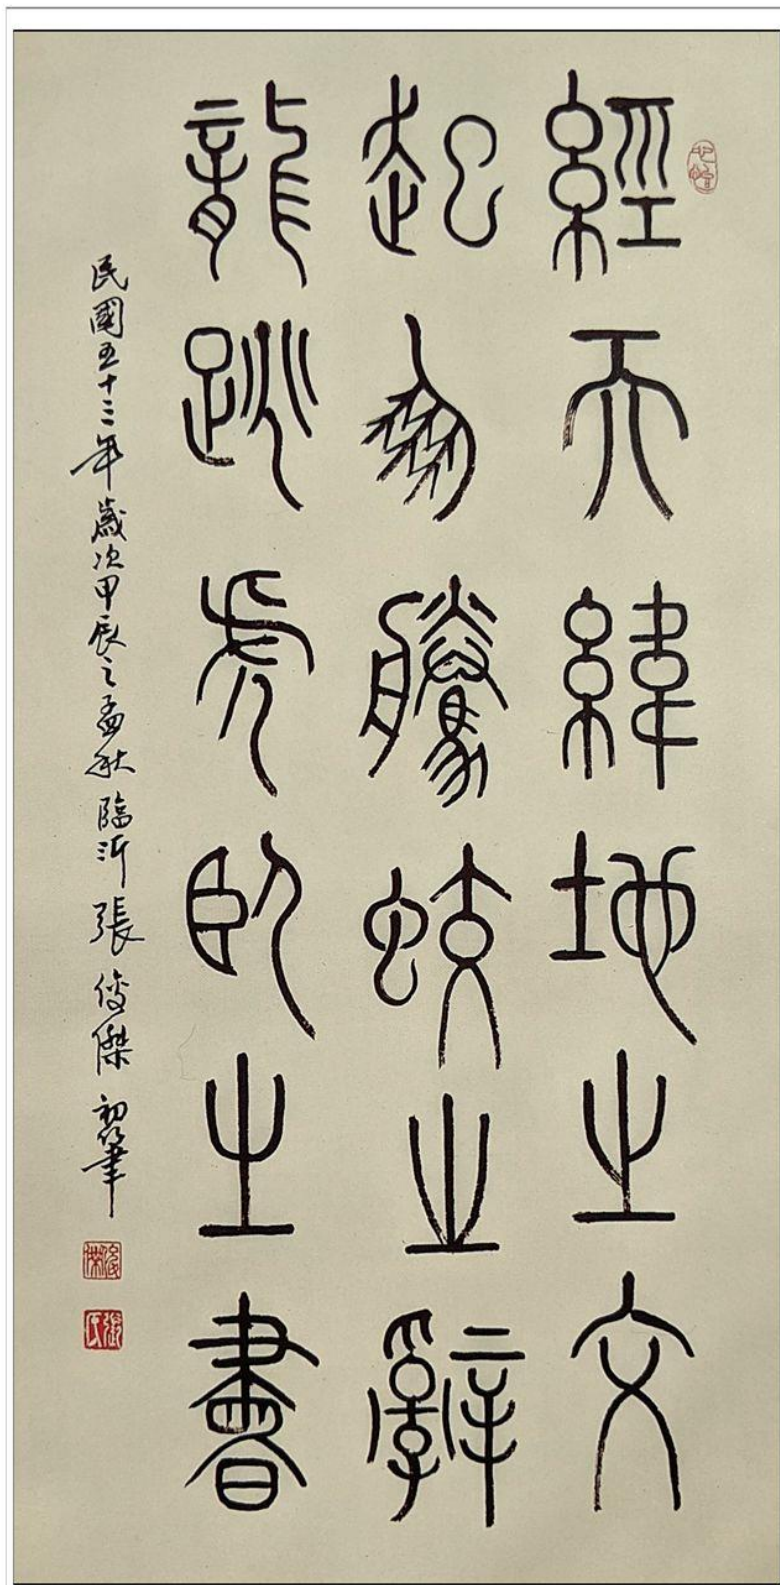 經天緯地之文
起鳳騰蛟之辭
龍跳虎臥之書
民國五十三年歲次甲辰之孟秋臨沂張俊傑初筆
俊傑
張氏